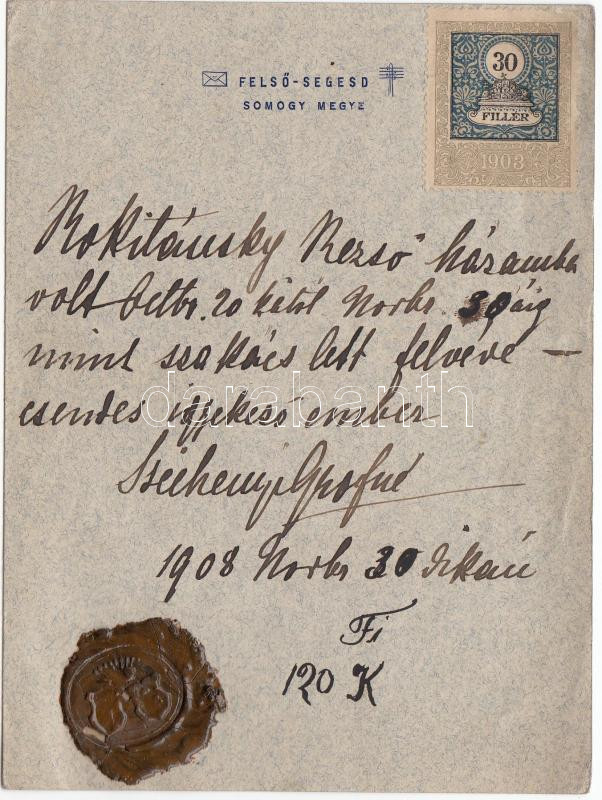 FELSŐ-SEGESD
SOMOGY MEGYE
30
FILLÉR
1903
Rokitánsky Rezső házamba
volt Octbr. 20 kától Novbr. 30áig
mint szakács lett felvéve —
csendes igyekező ember
Széchenyi Grofné
1908 Novbr 30 dikán
Fi
120 K
darabanth